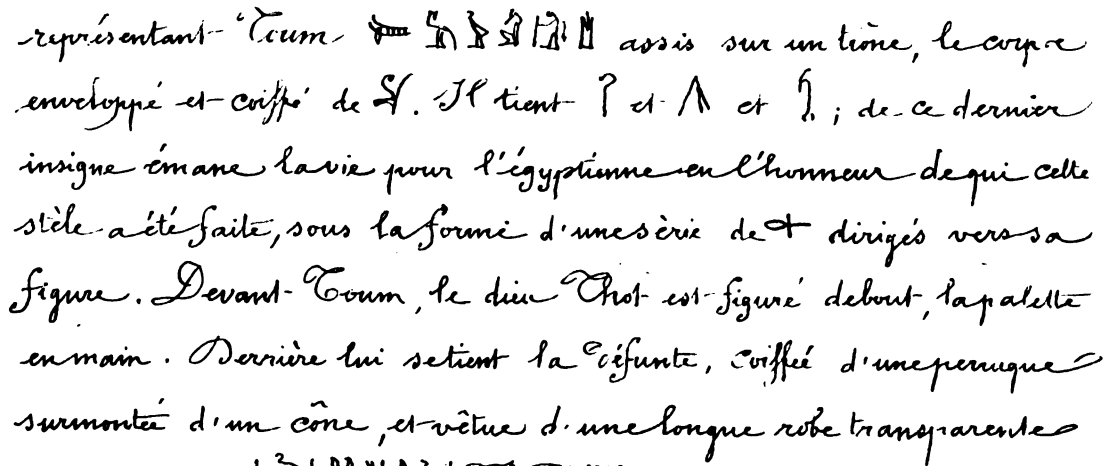 représentant Toum assis sur un trône, le corps
enveloppé et coiffé de . Il tient et et ; de ce dernier
insigne émane la vie pour l'égyptienne en l'honneur de qui cette
stèle a été faite, sous la forme d'une série de dirigés vers sa
figure. Devant Toum, le dieu Thot est figuré debout, la palette
en main. Derrière lui se tient la défunte, coiffée d'une perruque
surmontée d'un cône, et vêtue d'une longue robe transparente